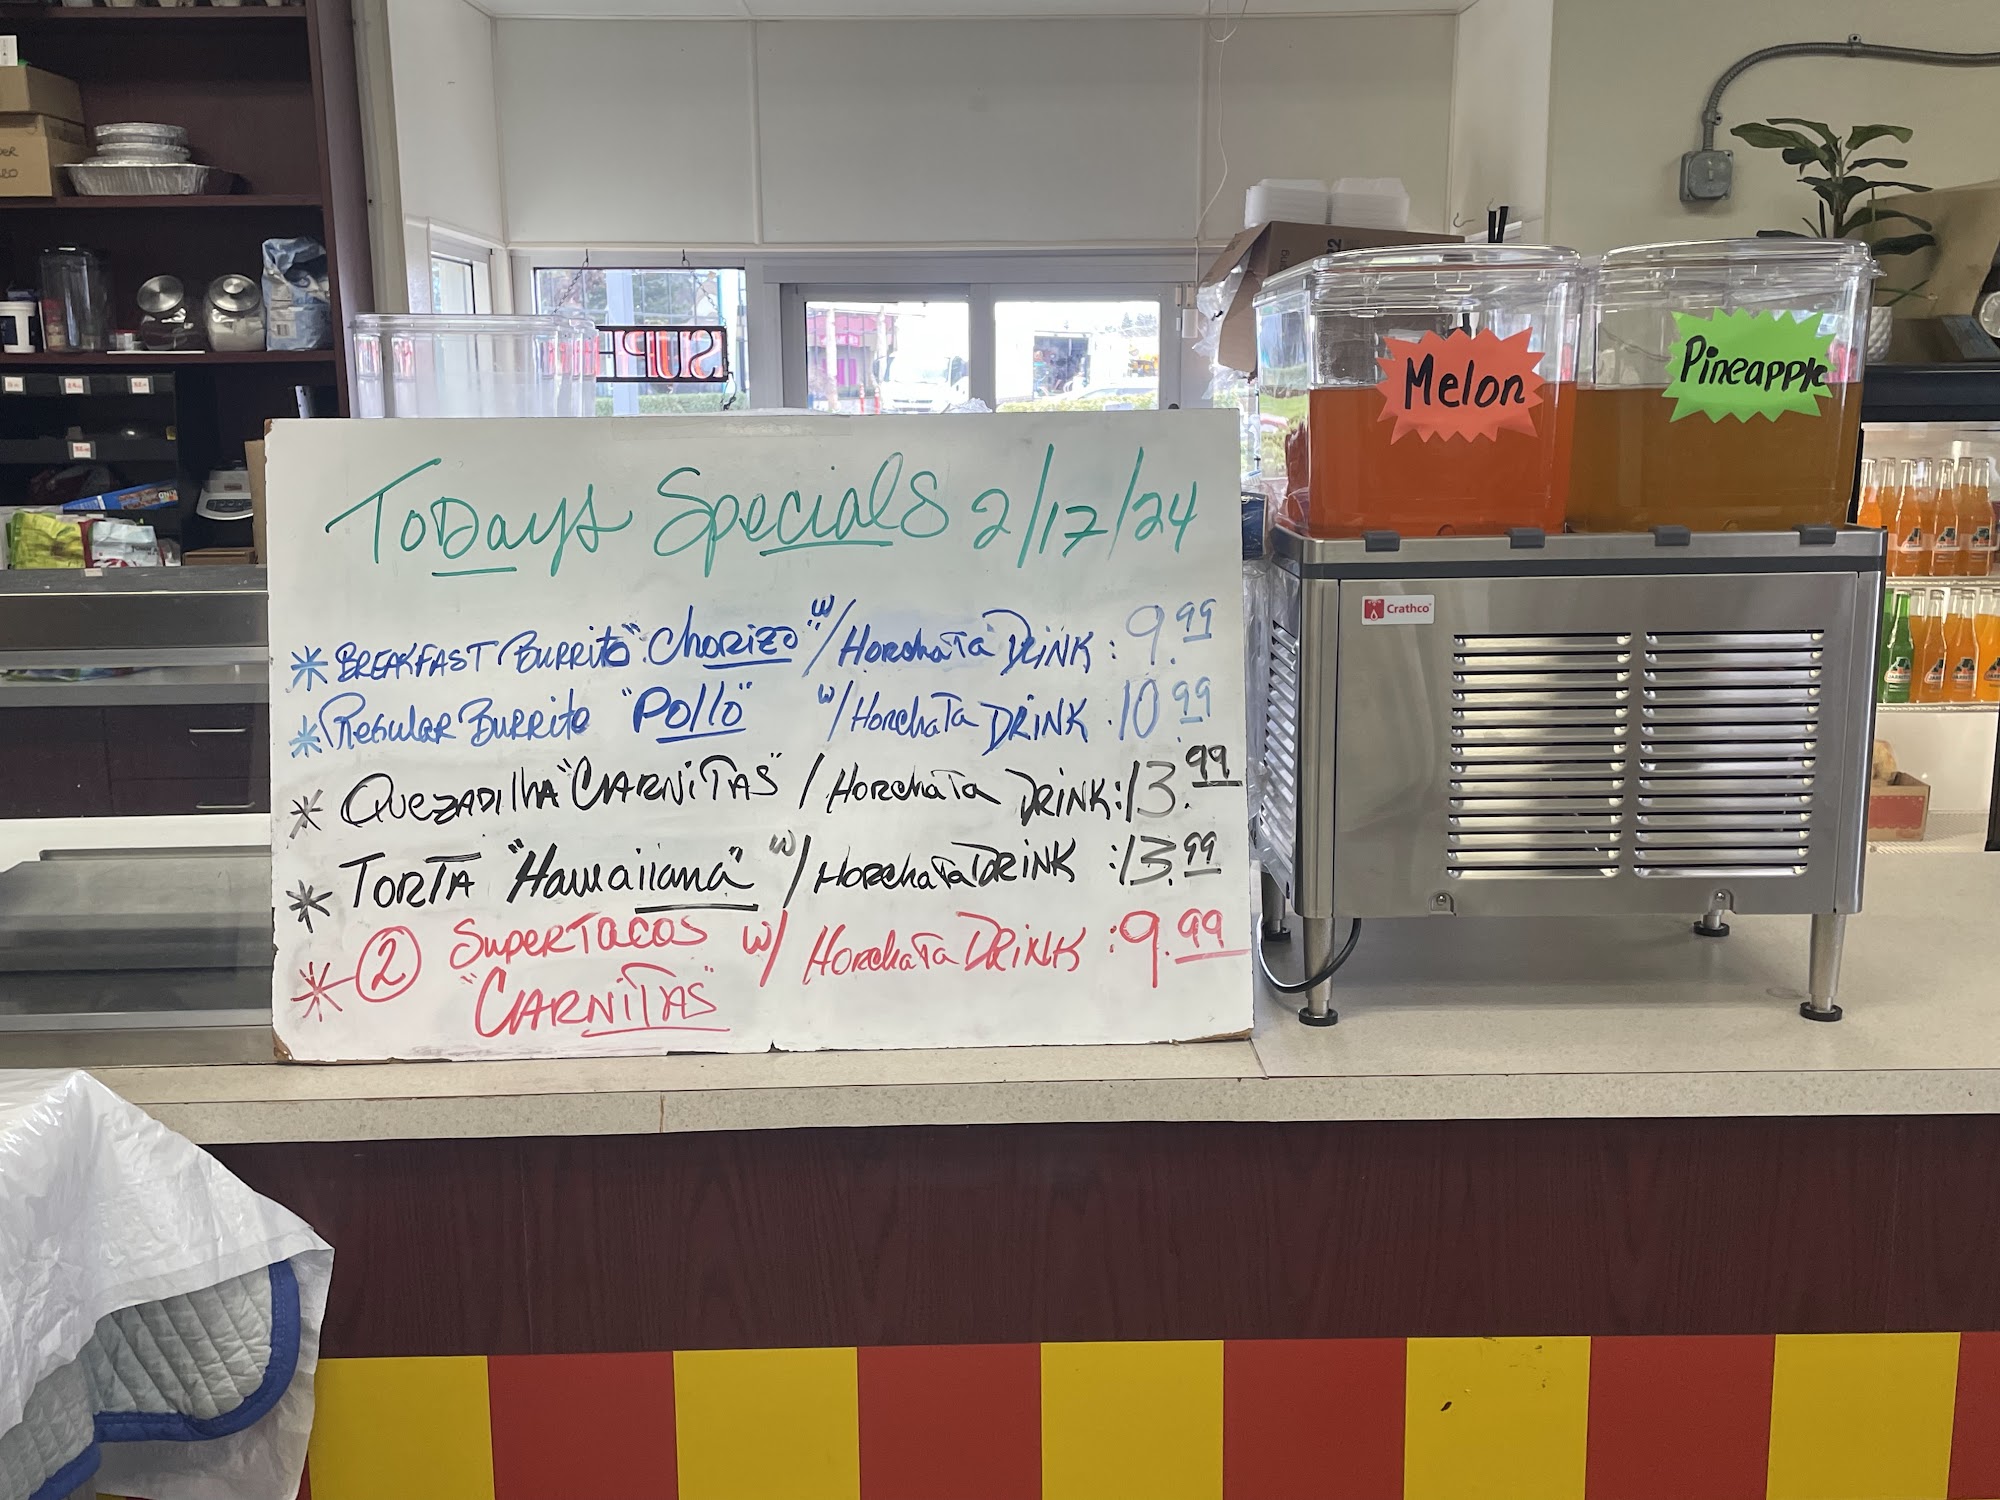 Todays Specials 2/17/24
* Breakfast Burrito "Chorizo" w/ Horchata Drink: 9.99
* Regular Burrito "Pollo" w/ Horchata Drink: 10.99
* Quezadilha "Carnitas" / Horchata Drink: 13.99
* Torta "Hawaiiana" w/ Horchata Drink: 13.99
* 2 Super Tacos w/ Horchata Drink: 9.99
"Carnitas"
Melon
Pineapple
Crathco